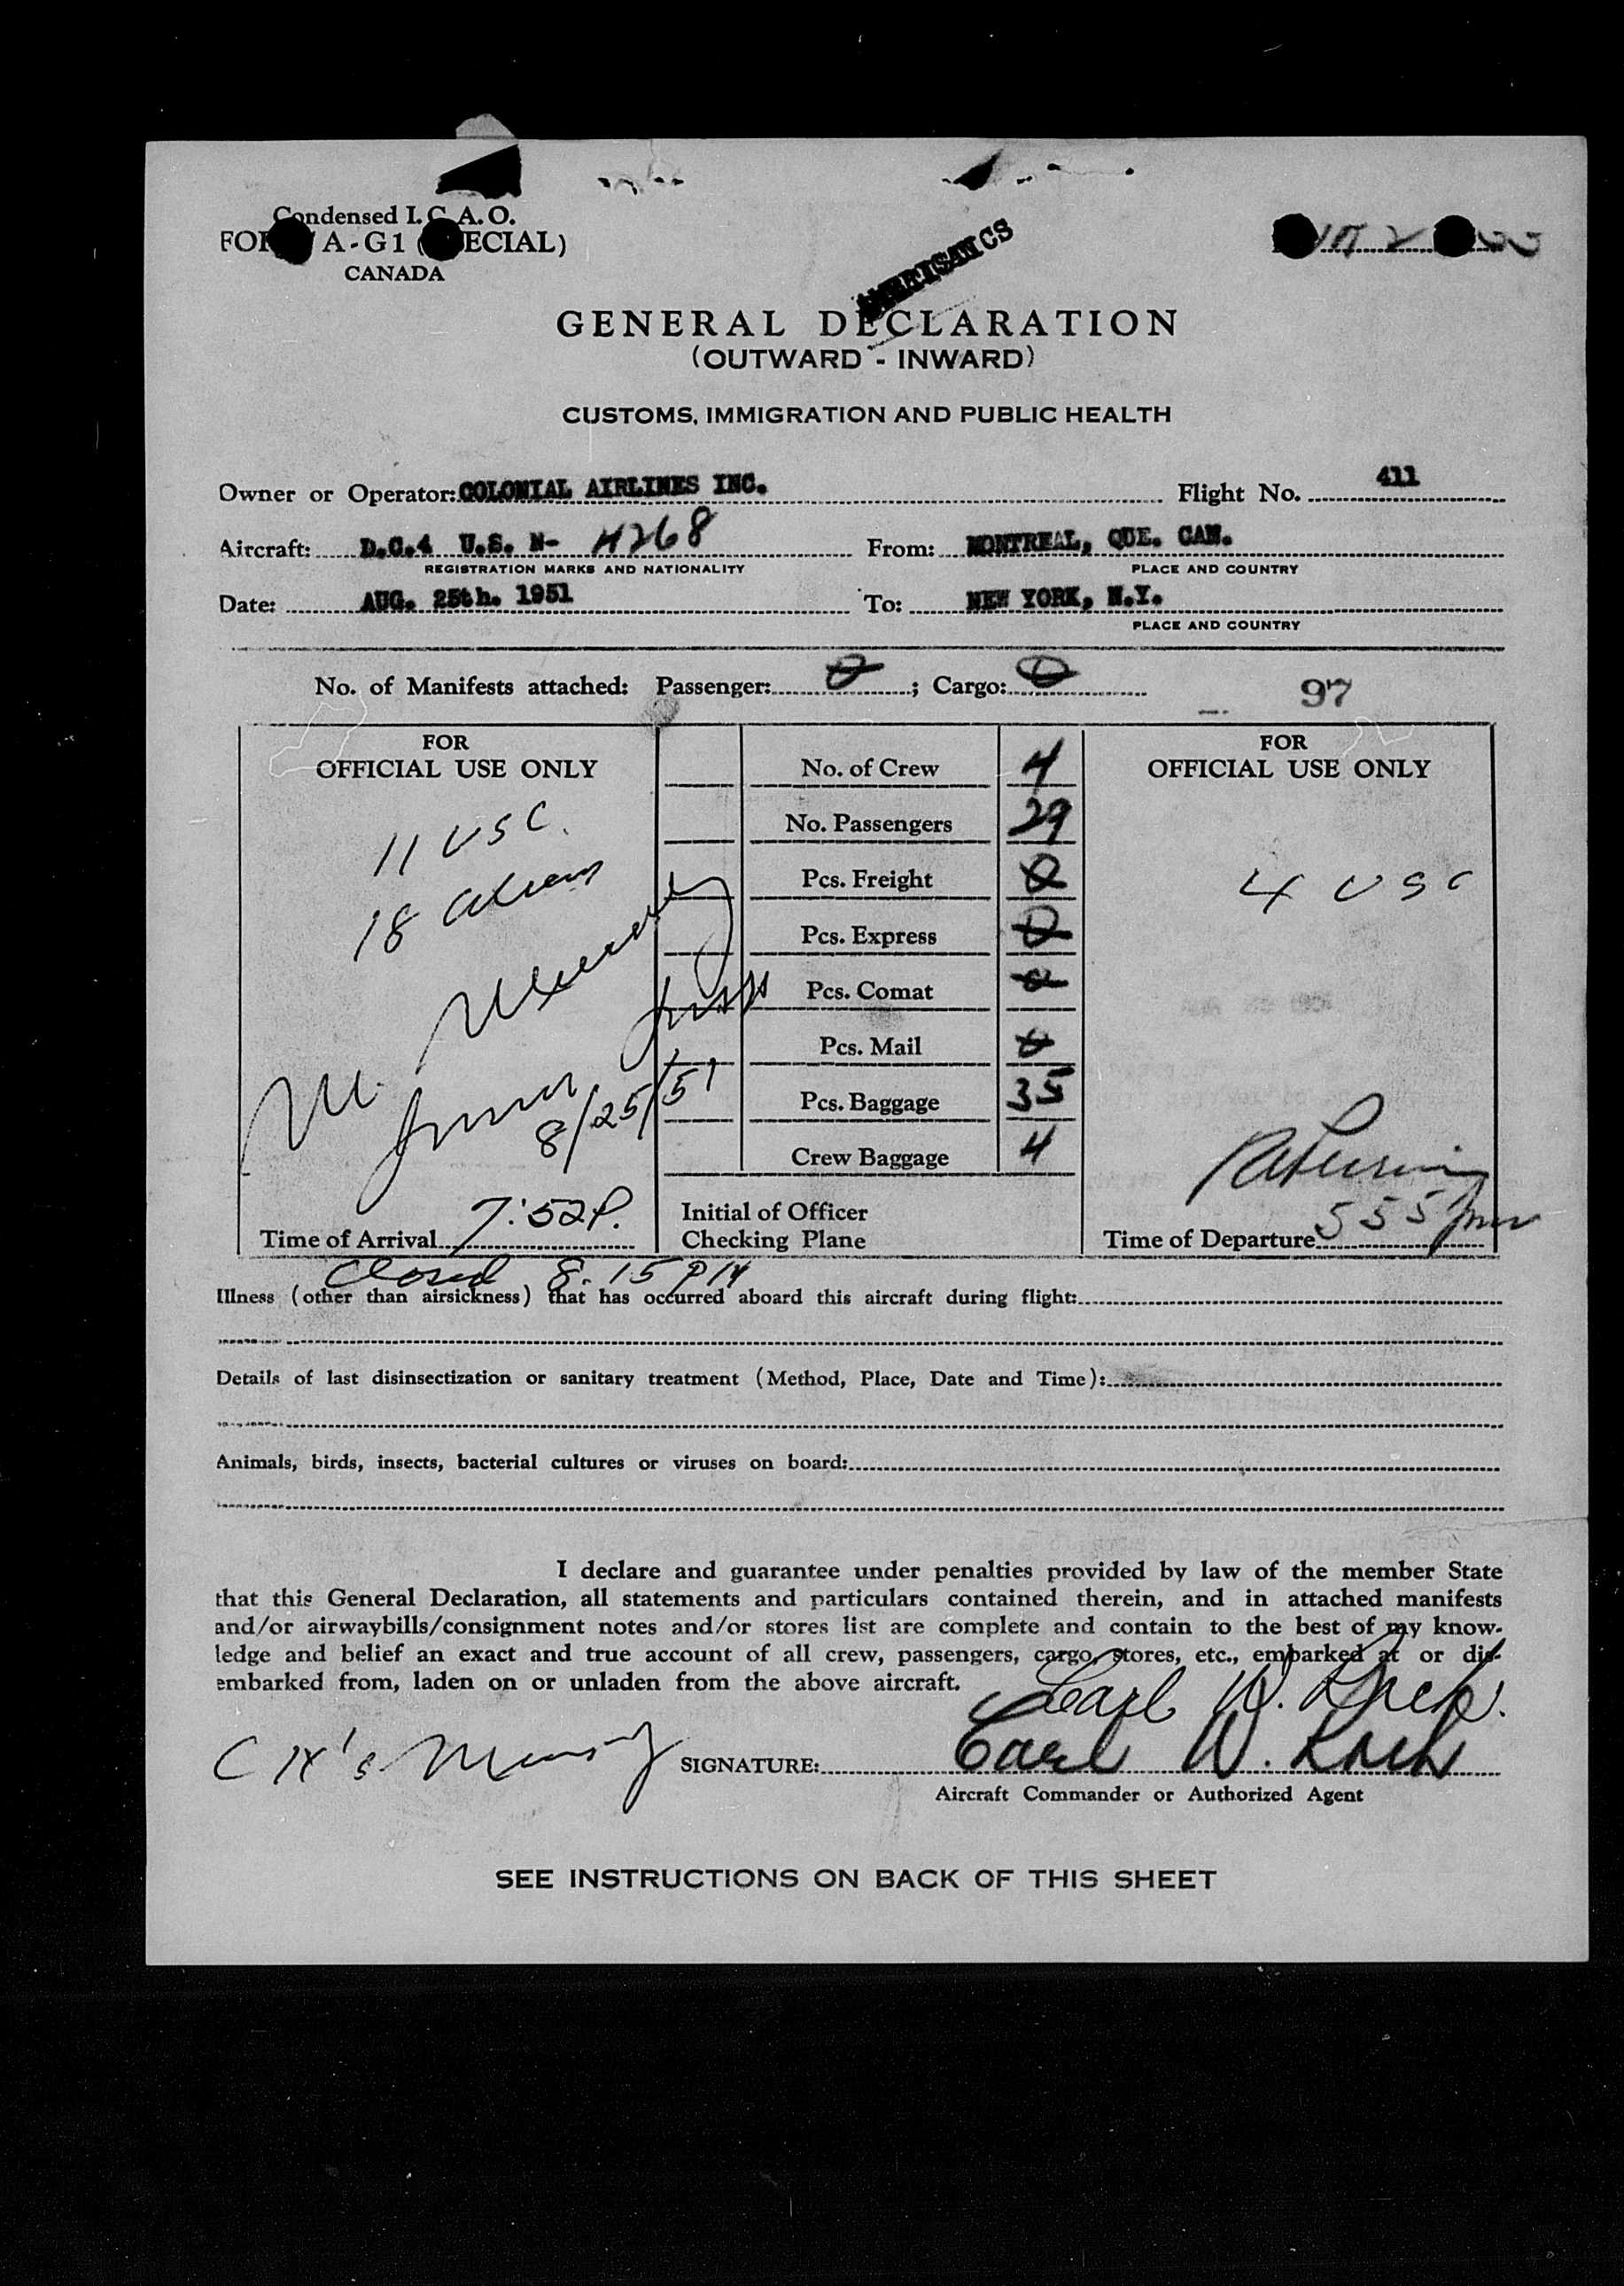 Condensed I.C.A.O.
A-G1 (SPECIAL)
CANADA
GENERAL DECLARATION
(OUTWARD - INWARD)
CUSTOMS, IMMIGRATION AND PUBLIC HEALTH
Owner or Operator: COLONIAL AIRLINES INC. Flight No. 411
Aircraft: D.C.4 U.S. N- 4268 From: MONTREAL, QUE. CAN.
REGISTRATION MARKS AND NATIONALITY PLACE AND COUNTRY
Date: AUG. 25th. 1951 To: NEW YORK, N.Y.
PLACE AND COUNTRY
No. of Manifests attached: Passenger: 0; Cargo: 0 97
FOR
OFFICIAL USE ONLY
11 USC.
18 aliens
8/25/51
Time of Arrival 7:52P.
Closed 8.15 PM
No. of Crew 4
No. Passengers 29
Pcs. Freight 0
Pcs. Express 0
Pcs. Comat 0
Pcs. Mail 0
Pcs. Baggage 35
Crew Baggage 4
Initial of Officer
Checking Plane
FOR
OFFICIAL USE ONLY
4 USC
Time of Departure 555 pm
Illness (other than airsickness) that has occurred aboard this aircraft during flight:
Details of last disinsectization or sanitary treatment (Method, Place, Date and Time):
Animals, birds, insects, bacterial cultures or viruses on board:
I declare and guarantee under penalties provided by law of the member State
that this General Declaration, all statements and particulars contained therein, and in attached manifests
and/or airwaybills/consignment notes and/or stores list are complete and contain to the best of my know-
ledge and belief an exact and true account of all crew, passengers, cargo, stores, etc., embarked at or dis-
embarked from, laden on or unladen from the above aircraft.
Carl W. Koch.
SIGNATURE: Carl W. Koch
Aircraft Commander or Authorized Agent
SEE INSTRUCTIONS ON BACK OF THIS SHEET